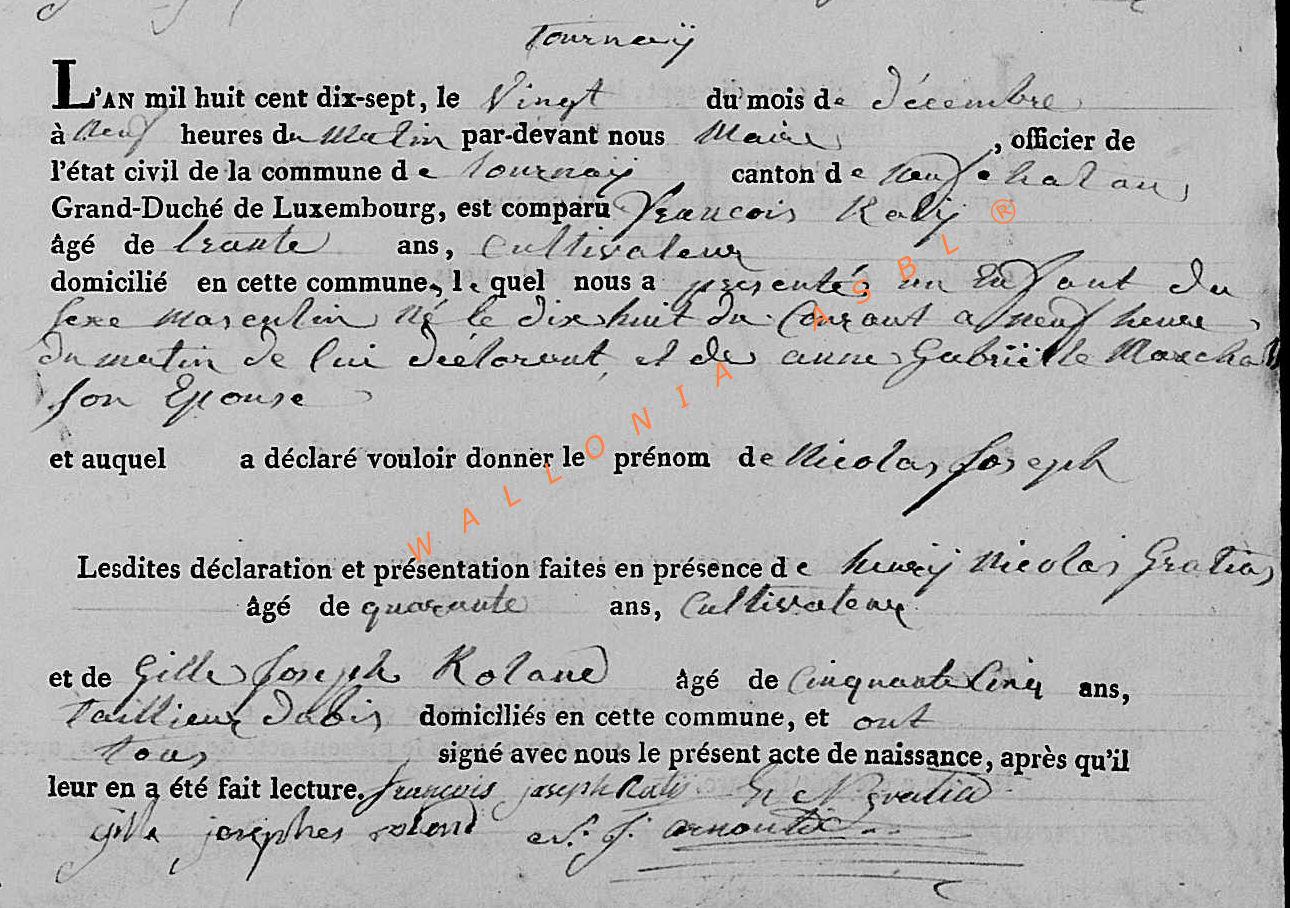 Tournaÿ
L'AN mil huit cent dix-sept, le Vingt du mois de décembre
à Neuf heures du Matin par-devant nous Maire , officier de
l'état civil de la commune de Tournaÿ canton de neufchateau
Grand-Duché de Luxembourg, est comparu francois
âgé de trante ans, Cultivateur
domicilié en cette commune, lequel nous a presenté un Enfant du
sexe masculin Né le dix huit du Courant a neuf heure
du matin de lui déclarant, et de anne Gabriëlle Marchal
son Epouse
et auquel a déclaré vouloir donner le prénom de Nicolas Joseph
Lesdites déclaration et présentation faites en présence de henrÿ Nicolas Gratia
âgé de quarante ans, Cultivateur
et de Gille Joseph Roland âgé de Cinquante Cinq ans,
Taillieur dabis domiciliés en cette commune, et ont
tous signé avec nous le présent acte de naissance, après qu'il
leur en a été fait lecture. francois joseph h N gratia
gille josephes rolend
WALLONIA ASBL ®